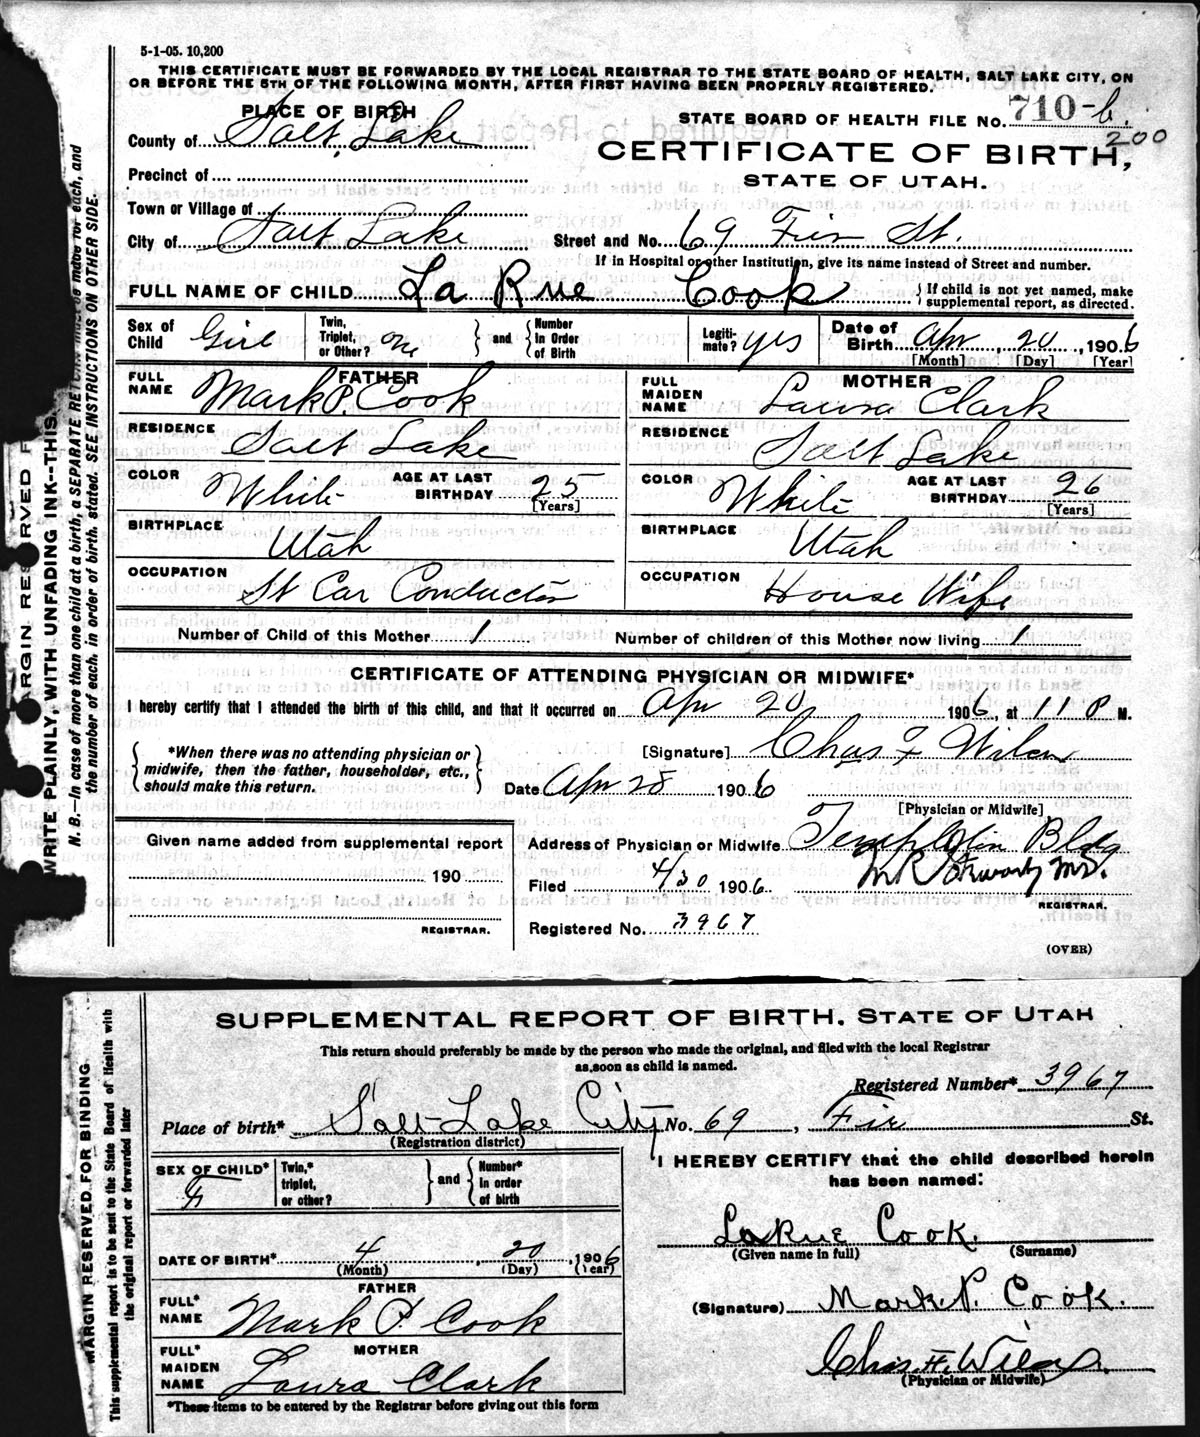 5-1-05. 10,200
THIS CERTIFICATE MUST BE FORWARDED BY THE LOCAL REGISTRAR TO THE STATE BOARD OF HEALTH, SALT LAKE CITY, ON
OR BEFORE THE 5TH OF THE FOLLOWING MONTH, AFTER FIRST HAVING BEEN PROPERLY REGISTERED.
PLACE OF BIRTH
STATE BOARD OF HEALTH FILE NO. 710-b.
200
County of Salt Lake
CERTIFICATE OF BIRTH,
STATE OF UTAH.
Precinct of
Town or Village of
City of Salt Lake Street and No. 69 Fir St.
If in Hospital or other Institution, give its name instead of Street and number.
FULL NAME OF CHILD La Rue Cook { If child is not yet named, make supplemental report, as directed.
Sex of Child Girl Twin, Triplet, or Other? one } and { Number In Order of Birth Legiti-mate? yes Date of Birth Apr 20, 1906
[Month] [Day] [Year]
FATHER
FULL NAME Mark P. Cook
RESIDENCE Salt Lake
COLOR White AGE AT LAST BIRTHDAY 25
[Years]
BIRTHPLACE Utah
OCCUPATION St Car Conductor
MOTHER
FULL MAIDEN NAME Laura Clark
RESIDENCE Salt Lake
COLOR White AGE AT LAST BIRTHDAY 26
[Years]
BIRTHPLACE Utah
OCCUPATION House Wife
Number of Child of this Mother 1 Number of children of this Mother now living 1
CERTIFICATE OF ATTENDING PHYSICIAN OR MIDWIFE*
I hereby certify that I attended the birth of this child, and that it occurred on Apr 20 1906, at 11 P M.
{ *When there was no attending physician or
midwife, then the father, householder, etc.,
should make this return. }
[Signature] Chas F Wilcox
Date Apr 28 1906
[Physician or Midwife]
Given name added from supplemental report
190
REGISTRAR.
Address of Physician or Midwife Templeton Bldg
Filed 4/30 1906 M.D.
REGISTRAR.
Registered No. 3967
(OVER)
MARGIN RESERVED F
WRITE PLAINLY, WITH UNFADING INK--THIS
N. B.—In case of more than one child at a birth, a SEPARATE RETURN must be made for each, and
the number of each, in order of birth, stated. SEE INSTRUCTIONS ON OTHER SIDE.
SUPPLEMENTAL REPORT OF BIRTH. STATE OF UTAH
This return should preferably be made by the person who made the original, and filed with the local Registrar
as soon as child is named.
Registered Number* 3967
Place of birth* Salt Lake City No. 69, Fir St.
(Registration district)
SEX OF CHILD* F Twin,* triplet, or other? } and { Number* in order of birth
DATE OF BIRTH* 4, 20, 1906
(Month) (Day) (Year)
FATHER
FULL* NAME Mark P. Cook
MOTHER
FULL* MAIDEN NAME Laura Clark
*These items to be entered by the Registrar before giving out this form
I HEREBY CERTIFY that the child described herein
has been named:
LaRue Cook.
(Given name in full) (Surname)
(Signature) Mark P. Cook.
Chas. F. Wilcox
(Physician or Midwife)
MARGIN RESERVED FOR BINDING
This supplemental report is to be sent to the State Board of Health with
the original report or forwarded later